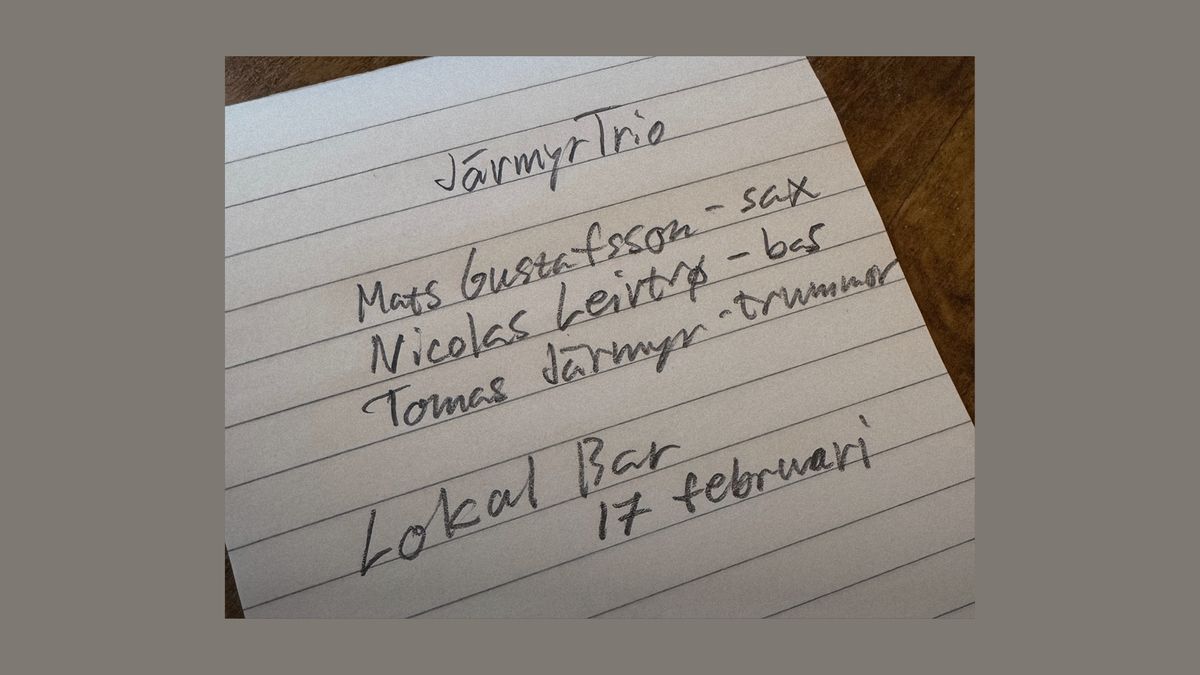 Järmyr Trio
Mats Gustafsson - sax
Nicolas Leirtrø - bas
Tomas Järmyr - trummor
Lokal Bar
17 februari